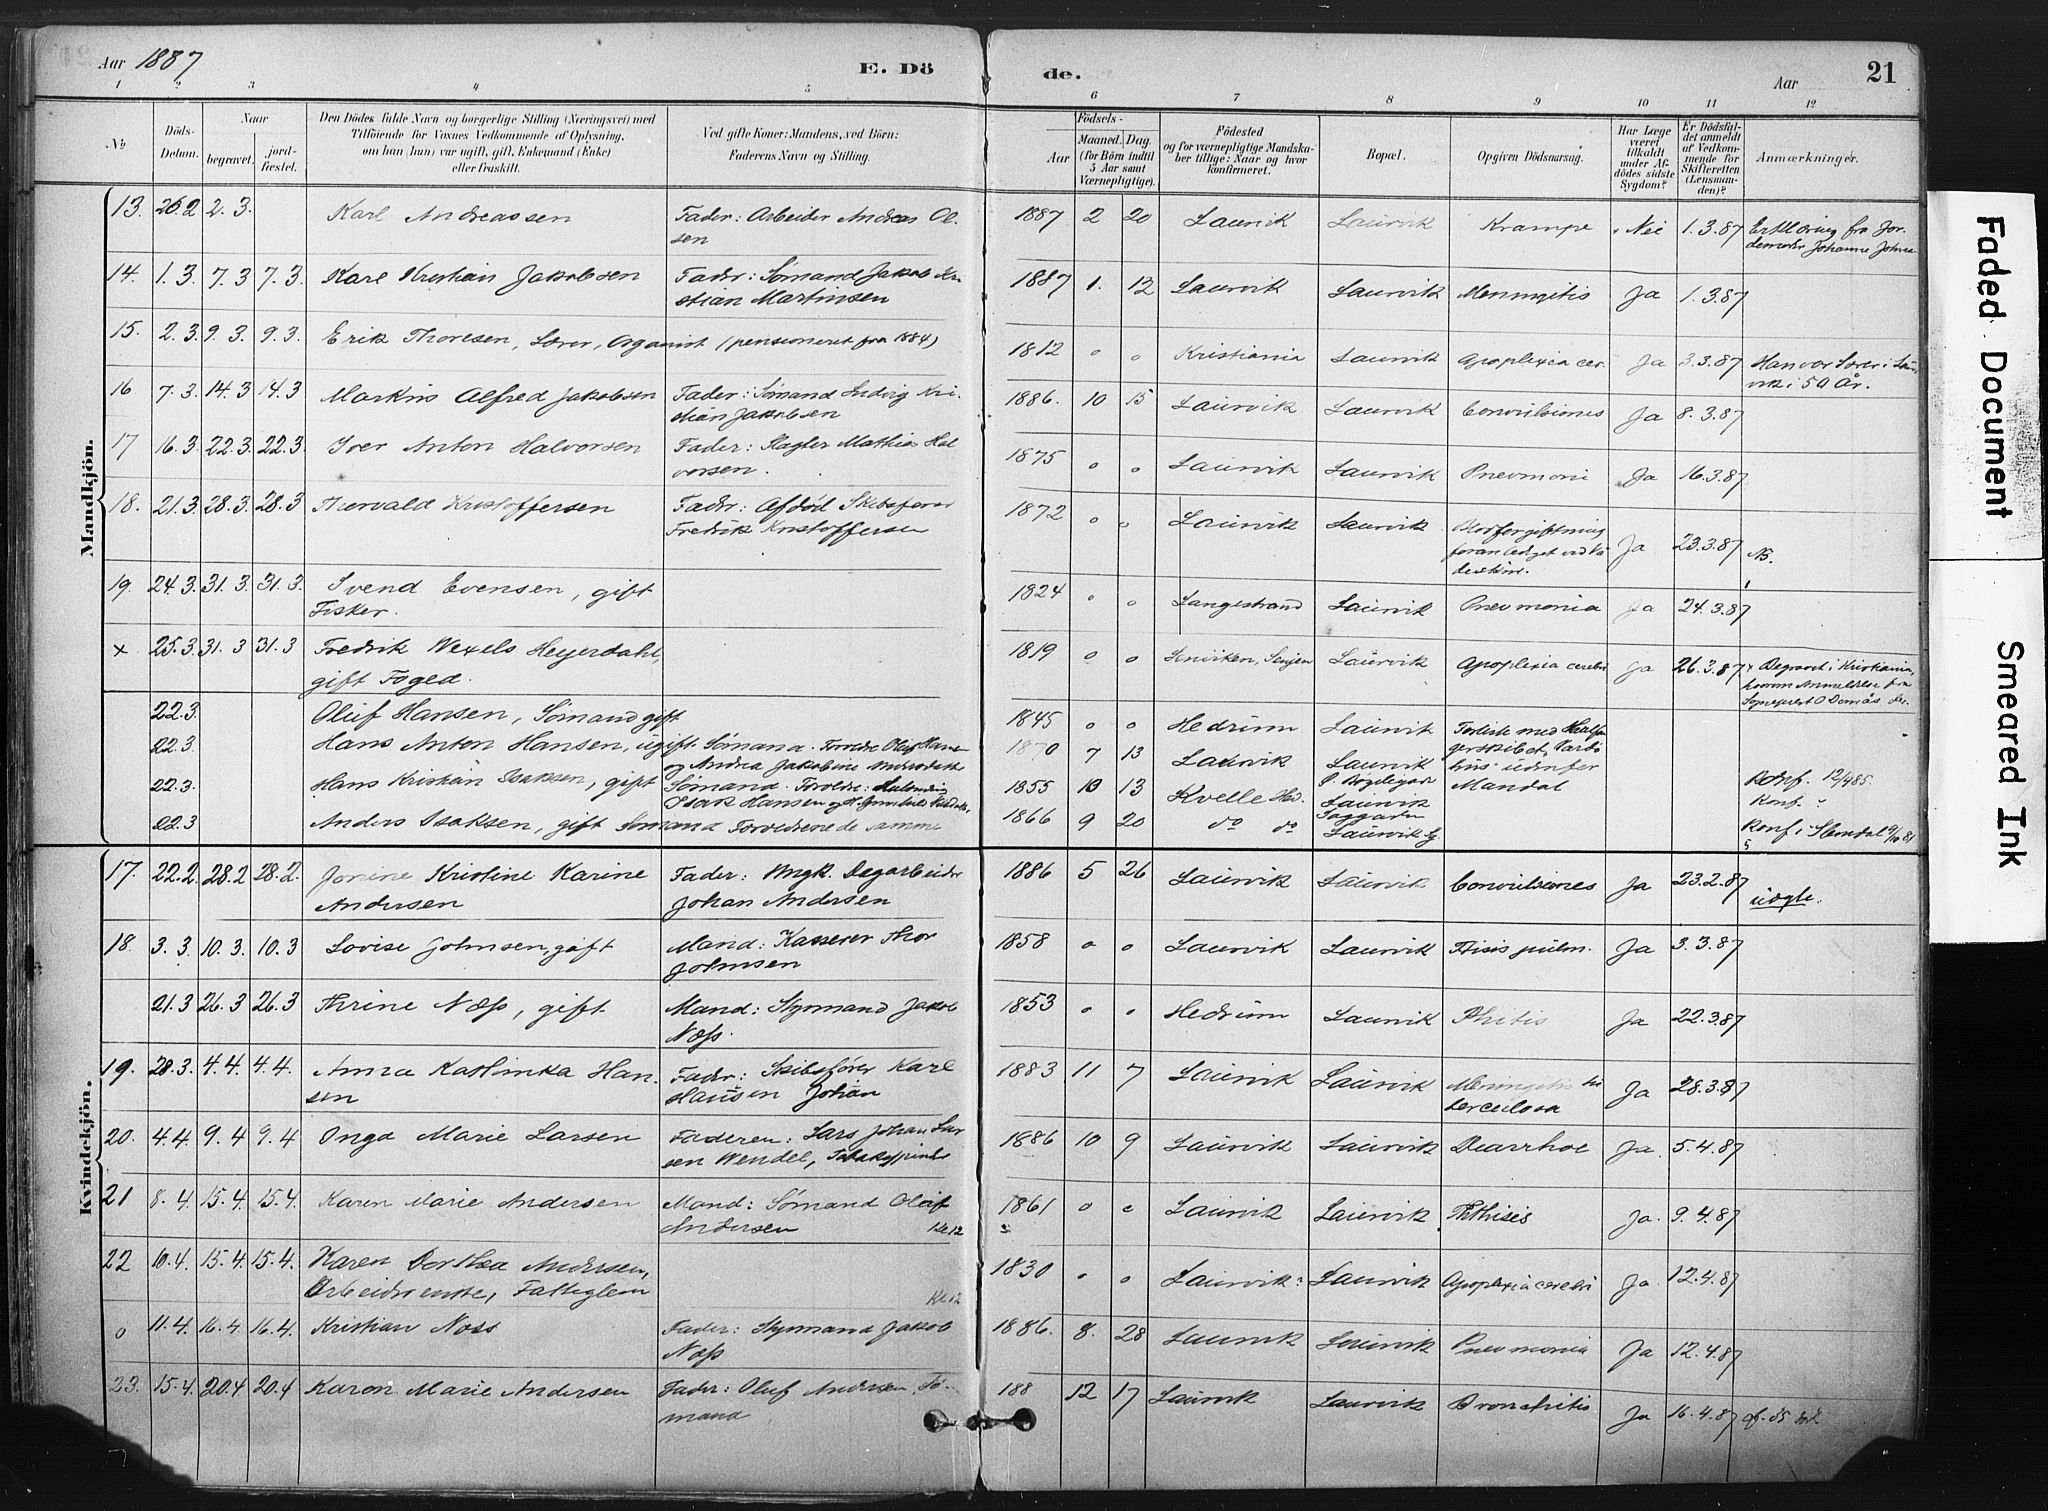 Aar 1887
E. Dö
de.
Aar
21
1 2 3 4 5 6 7 8 9 10 11 12
№
Döds-Datum.
Naar
begravet.
jord-fæstet.
Den Dödes fulde Navn og borgerlige Stilling (Næringsvei) med
Tilföiende for Voxnes Vedkommende af Oplysning,
om han (hun) var ugift, gift, Enkemand (Enke)
eller fraskilt.
Ved gifte Koner: Mandens, ved Börn:
Faderens Navn og Stilling.
Födsels-
Aar
Maaned. Dag.
(for Börn indtil
5 Aar samt
Værnepligtige).
Födested
og for værnepligtige Mandska-
ber tillige: Naar og hvor
konfirmeret.
Bopæl.
Opgiven Dödsaarsag.
Har Læge
været
tilkaldt
under Af-
dödes sidste
Sygdom?
Er Dödsfal-
det anmeldt
af Vedkom-
mende for
Skifteretten
(Lensman-
den)?
Anmærkninger.
Mandkjön.
13. 26.2 2.3. Karl Andreassen Fader: Arbeider Andreas Ol-
sen
1887 2 20 Laurvik Laurvik Krampe Nei 1.3.87 Erklæring fra Jor-
demoder Johanne
14. 1.3 7.3 7.3. Karl Kristian Jakobsen Fader: Sømand Jakob Kri-
stian Martinsen
1887 1. 12 Laurvik Laurvik Meningitis Ja 1.3.87
15. 2.3. 9.3. 9.3. Erik Thoresen, Lærer, Organist (pensioneret fra 1884)
1812 o o Kristiania Laurvik Apoplexia cer. Ja 3.3.87 Han var Lærer i Laur-
vik i 50 År.
16 7.3 14.3 14.3 Markus Alfred Jakobsen Fader: Sømand Ludvig Kri-
stian Jakobsen
1886. 10 15 Laurvik Laurvik Convulsiones Ja 8.3.87
17 16.3 22.3 22.3 Iver Anton Halvorsen Fader: Slagter Mathias Hal-
vorsen.
1875 o o Laurvik Laurvik Pnevmoni Ja 16.3.87
18. 21.3 28.3 28.3 Thorvald Kristoffersen Fader: Afdød Skibsfører
Fredrik Kristoffersen
1872 o o Laurvik Laurvik Blodforgiftning
foranlediget ved
Ja 23.3.87 NB.
19. 24.3. 31.3. 31.3. Svend Evensen, gift
Fisker.
1824 o o Langestrand Laurvik Pnevmonia Ja 24.3.87
x 25.3. 31.3 31.3 Fredrik Wexels Heyerdahl,
gift Foged.
1819 o o Senjen Laurvik Apoplexia cerebri Ja 26.3.87 x Begravet i Kristiania,
hvorom Anmeldelse fra
Sogneprest
22.3. Oluf Hansen, Sømand gift
1845 o o Hedrum Laurvik Forliste med
22.3. Hans Anton Hansen, ugift Sømand. Forældre Oluf Hansen
og Andrea Jakobine
1870 7 13 Laurvik Laurvik udenfor
22.3. Hans Kristian Isaksen, gift Sømand. Forældre:
Isak Hansen og
1855 10 13 Kvelle Hed. Laurvik Mandal Konf. 12/4 85.
Konf.
22.3 Anders Isaksen, gift Sømand Forældrene de samme
1866 9 20 do do Laurvik Konf. i Slemdal
Kvindekjön.
17. 22.2. 28.2 28.2. Jonine Kristine Karine
Andersen
Fader: Ungk. Dagarbeider
Johan Andersen
1886 5 26 Laurvik Laurvik Convulsiones Ja 23.2.87 uægte.
18. 3.3 10.3. 10.3 Lovise Johnsen, gift Mand: Kasserer Thor
Johnsen
1858 o o Laurvik Laurvik Ftisis pulm. Ja 3.3.87
21.3 26.3 26.3 Thrine Næss, gift Mand: Styrmand Jakob
Næss.
1853 o o Hedrum Laurvik Phtisis Ja 22.3.87
19. 28.3. 4.4. 4.4. Anna Kathinka Han-
sen
Fader: Skibsfører Karl
Johan Hansen
1883 11 7 Laurvik Laurvik Meningitis tu-
berculosa
Ja 28.3.87
20. 4.4. 9.4 9.4 Inga Marie Larsen Faderen: Lars Johan Lar-
sen Wendel, Tobakspinder
1886 10 9 Laurvik Laurvik Diarrhoe Ja 5.4.87
21 8.4 15.4. 15.4. Karen Marie Andersen Mand: Sømand Oluf
Andersen Kl 12
1861 o o Laurvik Laurvik Phthisis Ja. 9.4.87
22 10.4. 15.4. 15.4. Karen Dorthea Andersen,
Arbeiderenke, Fattiglem Kl 12
1830 o o Laurvik Laurvik Apoplexia cerebri Ja 12.4.87
o 11.4. 16.4. 16.4. Kristian Næss Fader: Styrmand Jakob
Næss
1886. 8. 28 Laurvik Laurvik Pnevmonia Ja 12.4.87
23. 15.4. 20.4 20.4 Karen Marie Andersen Fader: Oluf Andersen, Sø-
mand
188 12 17 Laurvik Laurvik Bronchitis Ja 16.4.87
Faded Document
Smeared Ink